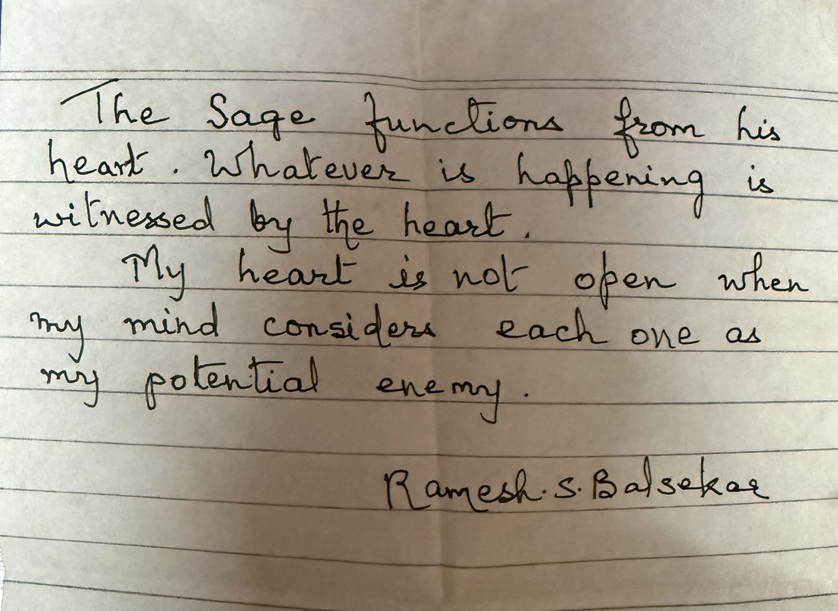 The Sage functions from his
heart. Whatever is happening is
witnessed by the heart.
My heart is not open when
my mind considers each one as
my potential enemy.
Ramesh.S.Balsekar